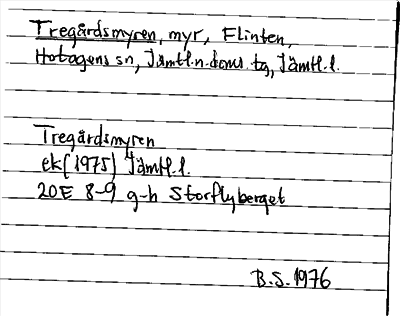 Tregårdsmyren, myr, Flinten,
Hotagens sn, Jämtl.n.doms.tg, Jämtl.l.
Tregårdsmyren
ek(1975) Jämtl.l.
20E 8-9 g-h Storflyberget
B.S.1976